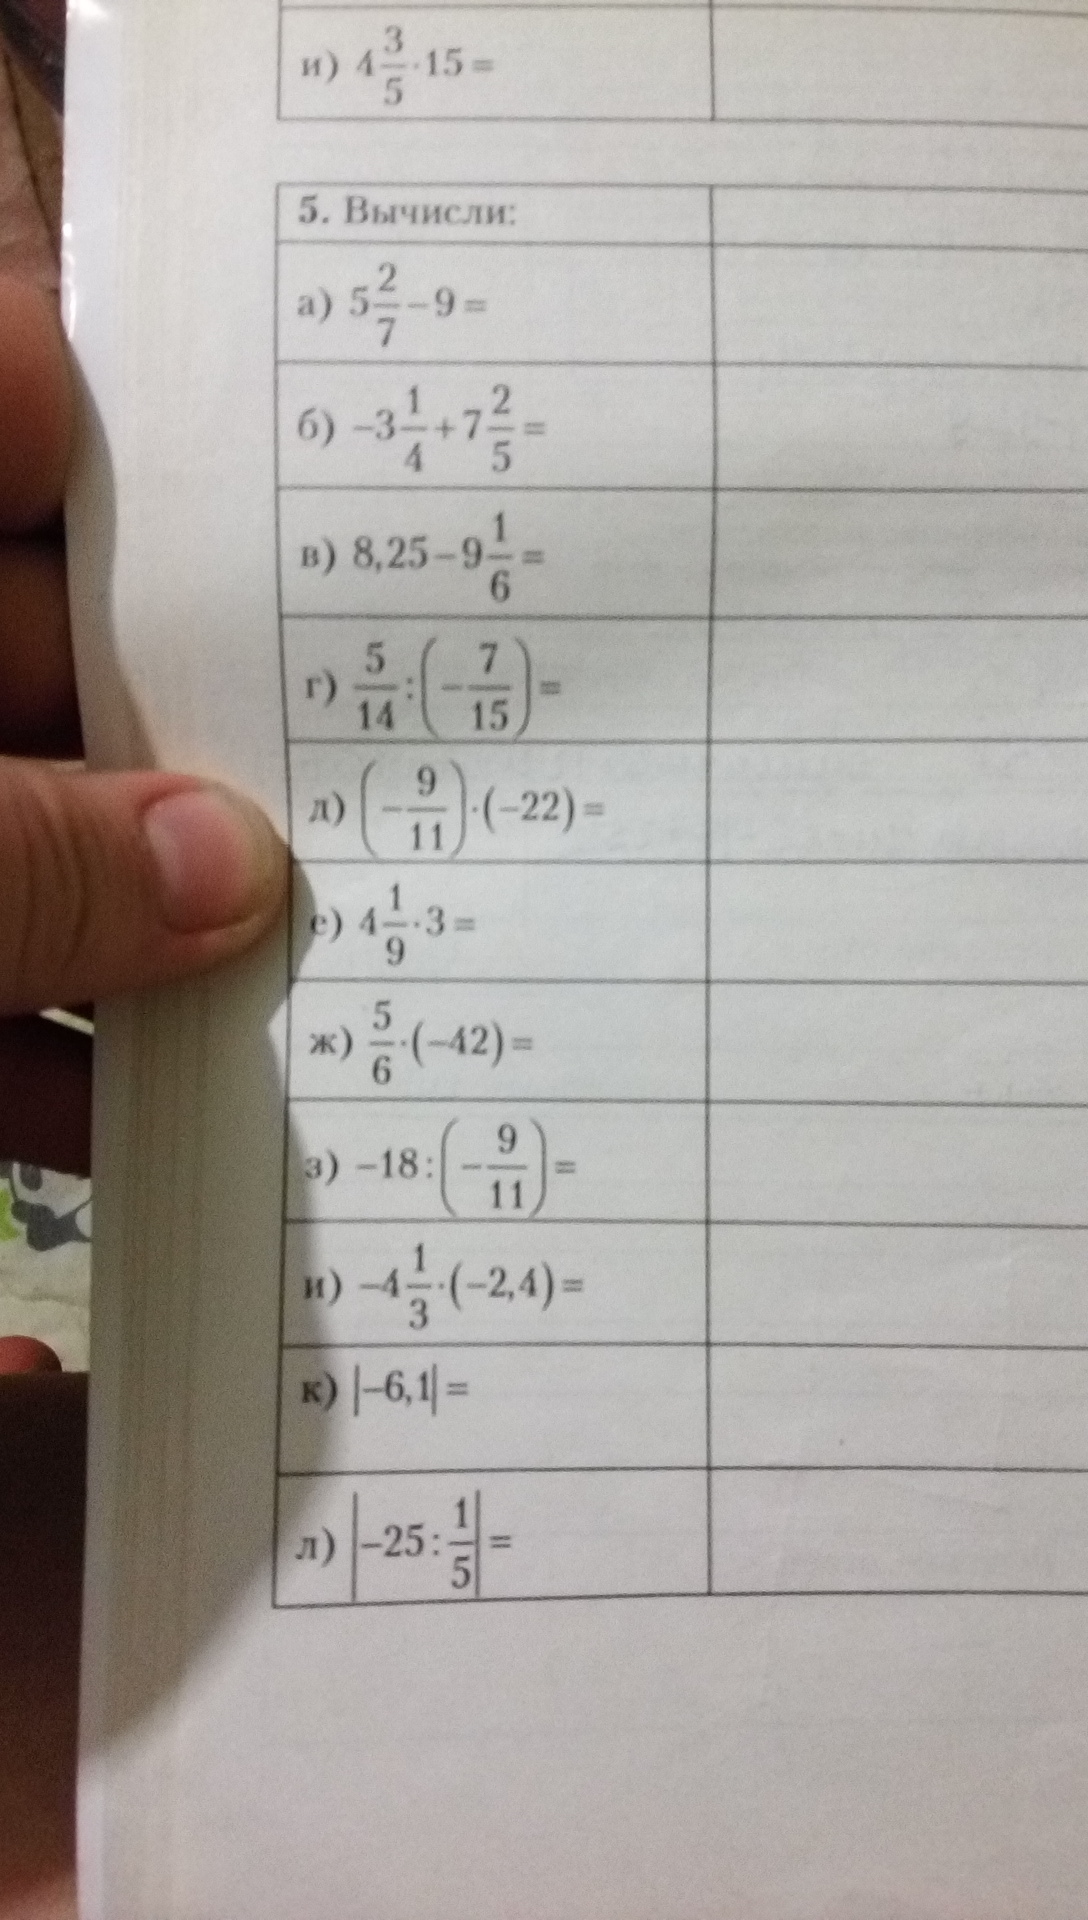 и) 4 3/5 · 15 =
5. Вычисли:
а) 5 2/7 − 9 =
б) −3 1/4 + 7 2/5 =
в) 8,25 − 9 1/6 =
г) 5/14 : (− 7/15) =
д) (− 9/11) · (−22) =
е) 4 1/9 · 3 =
ж) 5/6 · (−42) =
з) −18 : (− 9/11) =
и) −4 1/3 · (−2,4) =
к) |−6,1| =
л) |−25 : 1/5| =